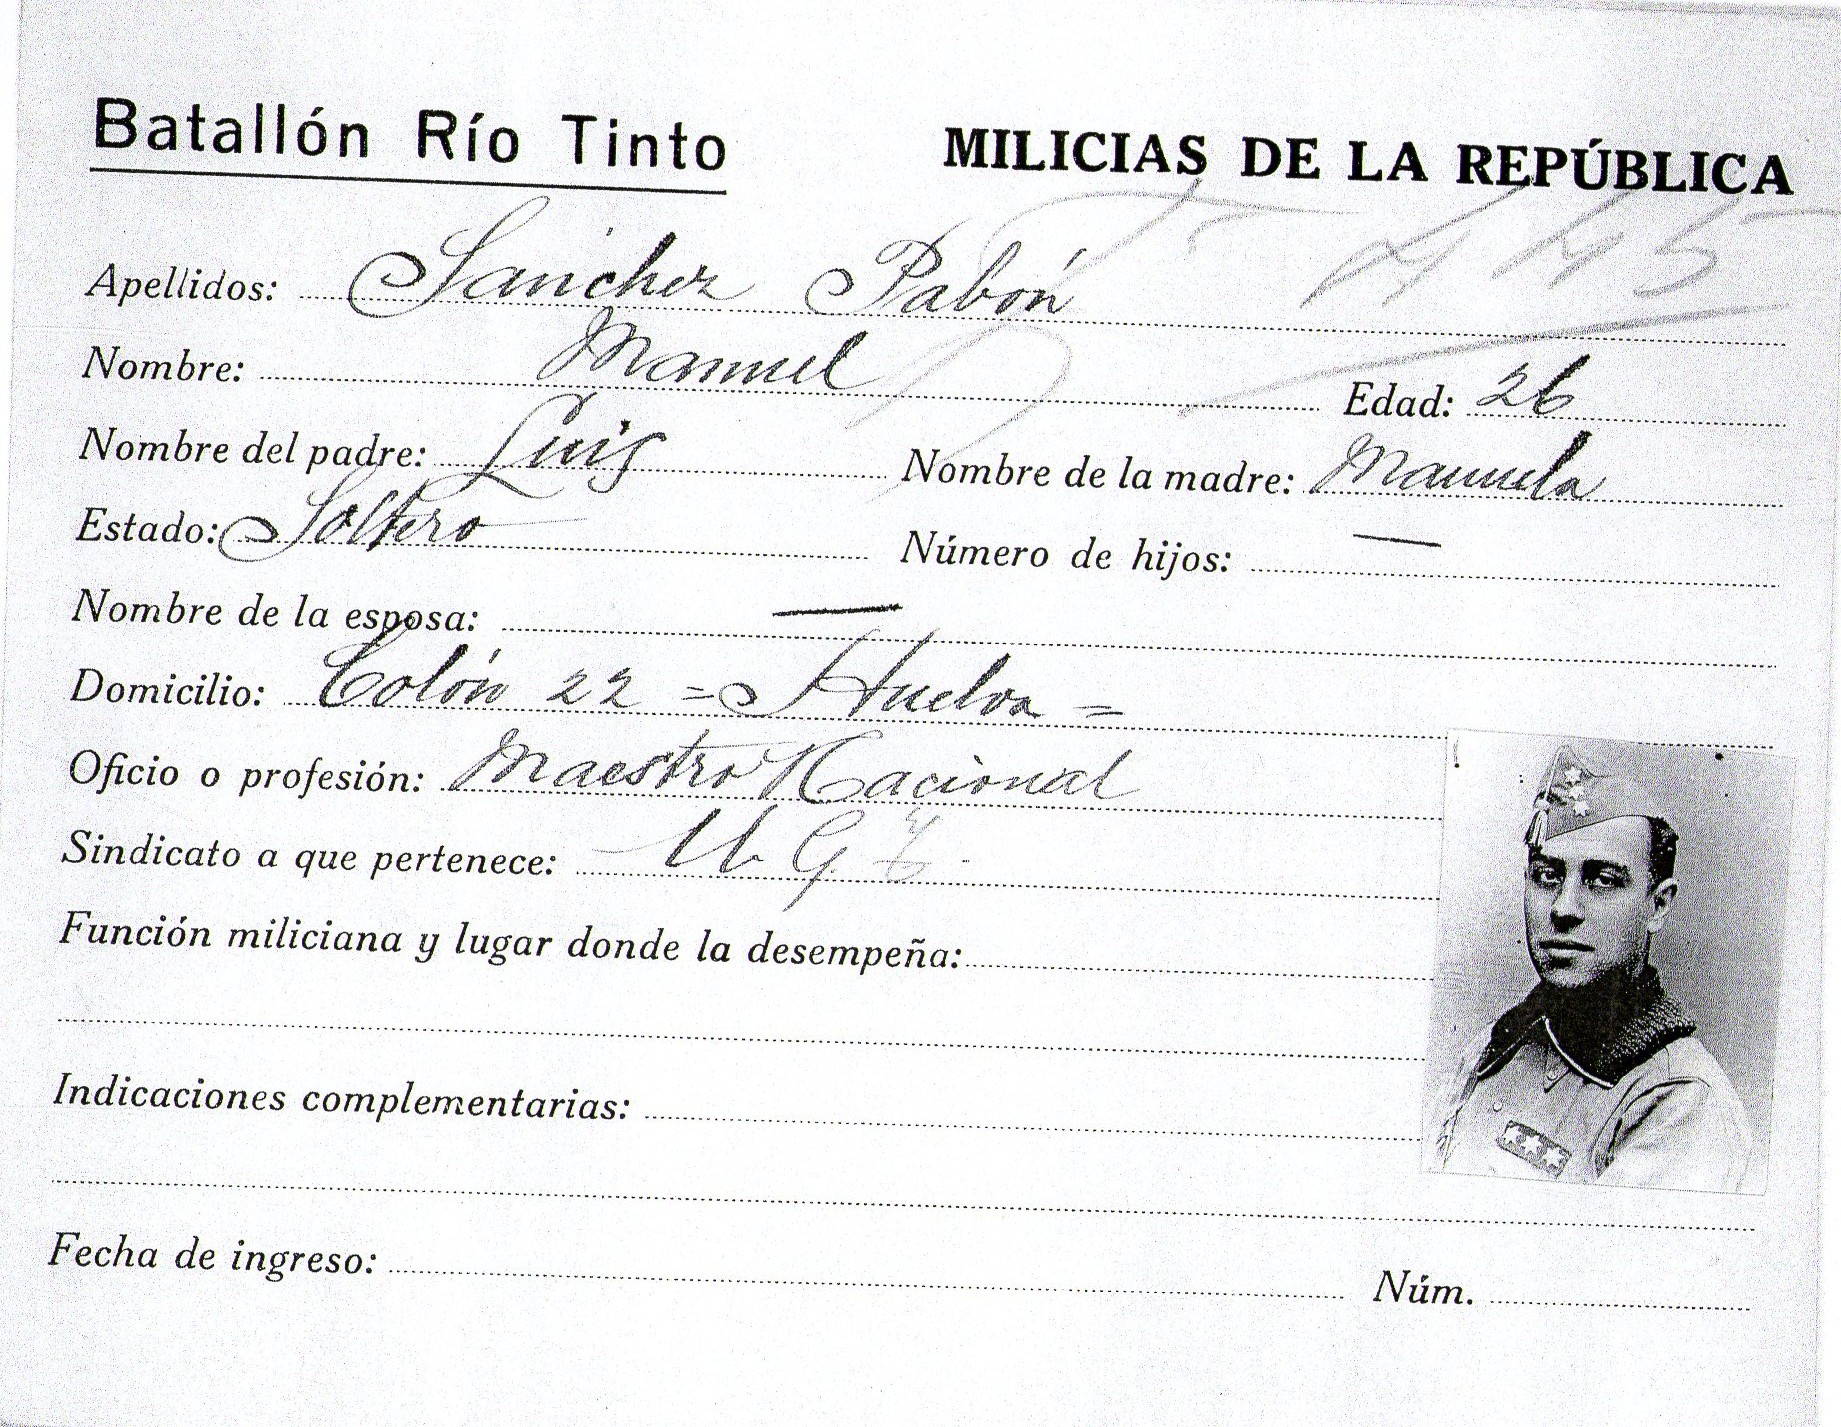 Batallón Río Tinto MILICIAS DE LA REPÚBLICA
Apellidos: Sanchez Pabón
Nombre: Manuel Edad: 26
Nombre del padre: Luis Nombre de la madre: Manuela
Estado: Soltero Número de hijos: —
Nombre de la esposa: —
Domicilio: Colón 22 = Huelva =
Oficio o profesión: Maestro Nacional
Sindicato a que pertenece: U. G. T.
Función miliciana y lugar donde la desempeña:
Indicaciones complementarias:
Fecha de ingreso: Núm.